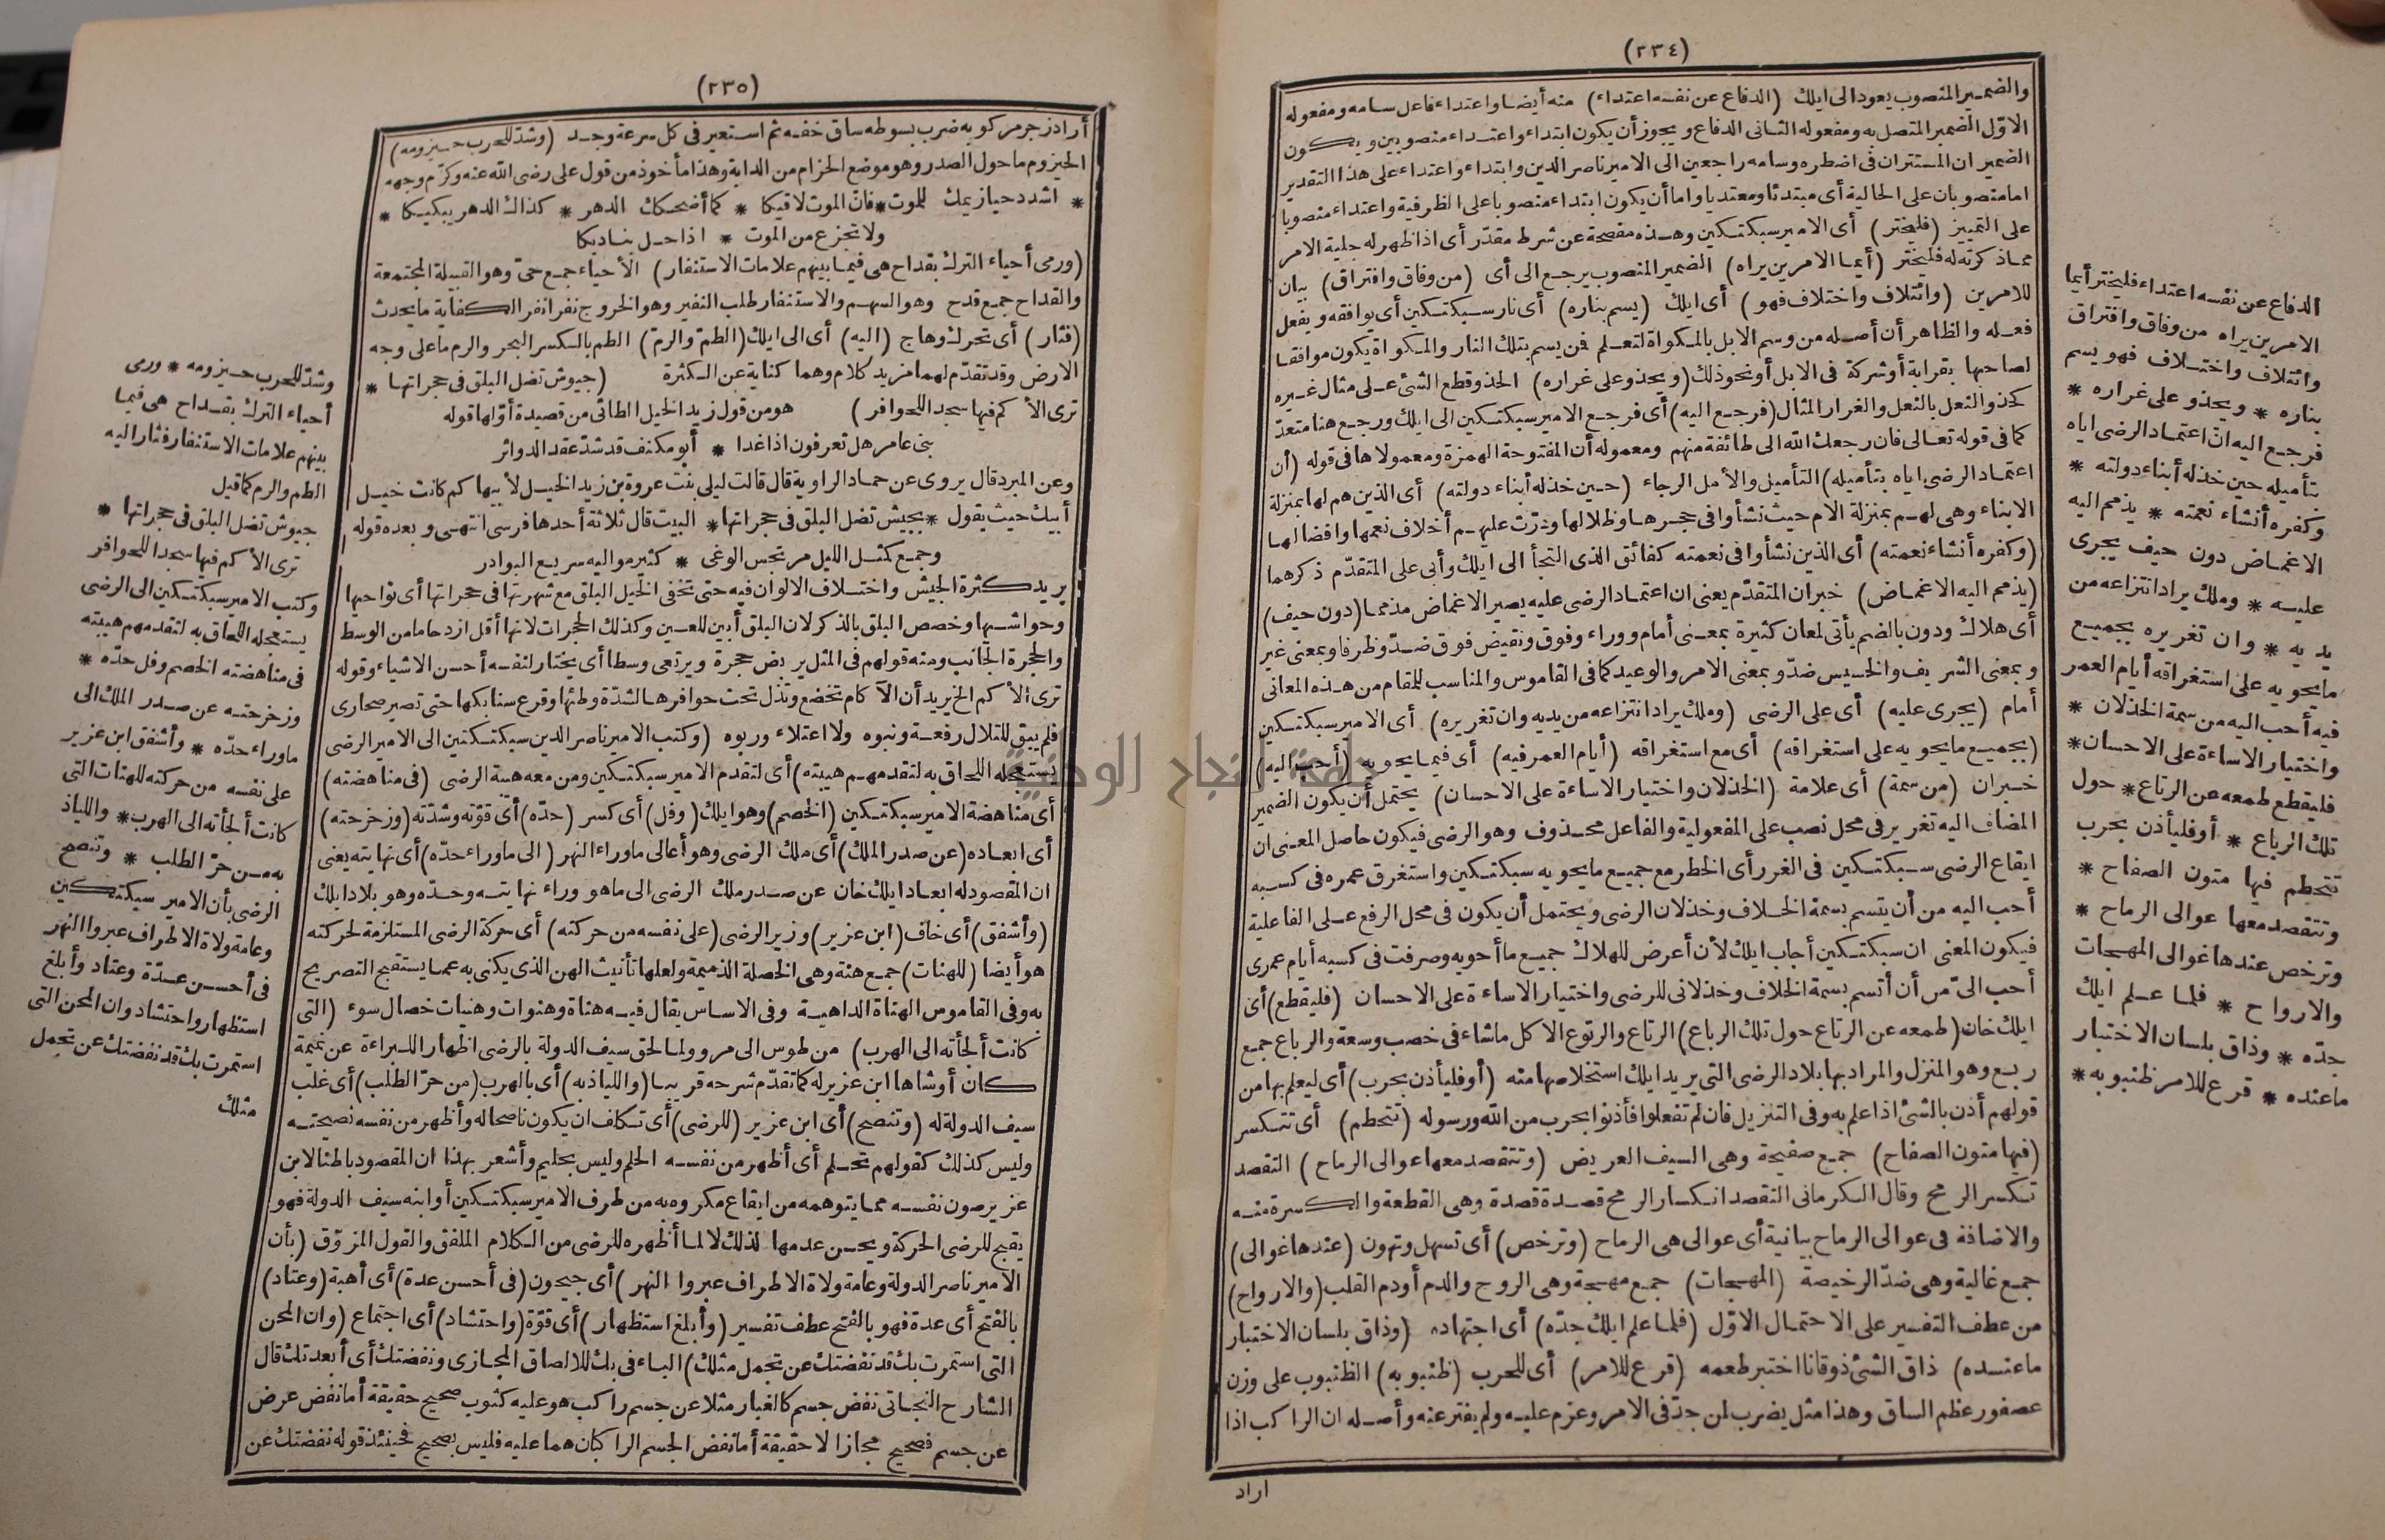 (٢٣٤)
والضمير المنصوب يعود الى ايلك (الدفاع عن نفسه اعتداء) منه أيضا واعتداء فاعل سامه ومفعوله
الاوّل الضمير المتصل به ومفعوله الثانى الدفاع ويجوز أن يكون ابتداء واعتداء منصوبين ويكون
الضمير ان المستتران فى اضطره وسامه راجعين الى الامير ناصر الدين وابتداء واعتداء على هذا التقدير
اما منصوبان على الحالية أى مبتدئا ومعتديا واما أن يكون ابتداء منصوبا على الظرفية واعتداء منصوبا
على التمييز (فليختر) أى الامير سبكتكين وهذه مفصحة عن شرط مقدّر أى اذا ظهر له جلية الامر
مما ذكرته له فليختر (أيما الامرين يراه) الضمير المنصوب يرجع الى أى (من وفاق وافتراق) بيان
للامرين (وائتلاف واختلاف فهو) أى ايلك (يسم بناره) أى نار سبكتكين أى يوافقه ويفعل
فعله والظاهر أن أصله من وسم الابل بالمكواة لتعلم فن يسم بتلك النار والمكواة يكون موافقا
لصاحبها بقرابة أو شركة فى الابل أو نحو ذلك (ويحذو على غراره) الحذو قطع الشئ على مثال غيره
كحذو النعل بالنعل والغرار المثال (فرجع اليه) أى فرجع الامير سبكتكين الى ايلك ورجع هنا متعدّ
كما فى قوله تعالى فان رجعك الله الى طائفة منهم ومعموله أن المفتوحة الهمزة ومعمولاها فى قوله (أن
اعتماد الرضى اياه بتأميله) التأميل والأمل الرجاء (حين خذله أبناء دولته) أى الذين هم لها بمنزلة
الابناء وهى لهم بمنزلة الام حيث نشأوا فى حجرها وظلالها ودرّت عليهم أخلاف نعمها وافضالها
(وكفره أنشاء نعمته) أى الذين نشأوا فى نعمته كفائق الذى التجأ الى ايلك وأبى على المتقدّم ذكرهما
(يذمم اليه الاغماض) خبران المتقدّم يعنى ان اعتماد الرضى عليه يصير الاغماض مذمما (دون حيف)
أى هلاك ودون بالضم يأتى لمعان كثيرة بمعنى أمام ووراء وفوق ونقيض فوق ضدّ وظرفا وبمعنى غير
وبمعنى الشريف والخسيس ضدّ وبمعنى الامر والوعيد كما فى القاموس والمناسب للمقام من هذه المعانى
أمام (يجرى عليه) أى على الرضى (وملك يراد انتزاعه من يديه وان تغريره) أى الامير سبكتكين
(بجميع ما يحويه على استغراقه) أى مع استغراقه (أيام العمر فيه) أى فيما يحويه (أحب اليه)
خبران (من سمة) أى علامة (الخذلان واختيار الاساءة على الاحسان) يحتمل أن يكون الضمير
المضاف اليه تغرير فى محل نصب على المفعولية والفاعل محذوف وهو الرضى فيكون حاصل المعنى ان
ايقاع الرضى سبكتكين فى الغرر أى الخطر مع جميع ما يحويه سبكتكين واستغرق عمره فى كسبه
أحب اليه من أن يتسم بسمة الخلاف وخذلان الرضى ويحتمل أن يكون فى محل الرفع على الفاعلية
فيكون المعنى ان سبكتكين أجاب ايلك لأن أعرض للهلاك جميع ما أحويه وصرفت فى كسبه أيام عمرى
أحب الىّ من أن أتسم بسمة الخلاف وخذلانى للرضى واختيار الاساءة على الاحسان (فليقطع) أى
ايلك خان (طمعه عن الرتاع حول تلك الرباع) الرتاع والرتوع الاكل ماشاء فى خصب وسعة والرباع جمع
ربع وهو المنزل والمراد بها بلاد الرضى التى يريد ايلك استخلاصها منه (أو فليأذن بحرب) أى ليعلم بها من
قولهم أذن بالشئ اذا علم به وفى التنزيل فان لم تفعلوا فأذنوا بحرب من الله ورسوله (تتحطم) أى تتكسر
(فيها متون الصفاح) جمع صفيحة وهى السيف العريض (وتتقصد معها عوالى الرماح) التقصد
تكسر الرمح وقال الكرمانى التقصد انكسار الرمح قصدة قصدة وهى القطعة والكسرة منه
والاضافة فى عوالى الرماح بيانية أى عوالى هى الرماح (وترخص) أى تسهل وتهون (عندها غوالى)
جمع غالية وهى ضدّ الرخيصة (المهجات) جمع مهجة وهى الروح والدم أو دم القلب (والارواح)
من عطف التفسير على الاحتمال الاوّل (فلما علم ايلك جدّه) أى اجتهاده (وذاق بلسان الاختبار
ماعنده) ذاق الشئ ذوقانا اختبر طعمه (قرع للامر) أى للحرب (ظنبوبه) الظنبوب على وزن
عصفور عظم الساق وهذا مثل يضرب لمن جدّ فى الامر وعزم عليه ولم يفتر عنه وأصله ان الراكب اذا
اراد
الدفاع عن نفسه اعتداء فليختر أيما
الامرين يراه من وفاق وافتراق
وائتلاف واختلاف فهو يسم
بناره * ويحذو على غراره *
فرجع اليه انّ اعتماد الرضى اياه
بتأميله حين خذله أبناء دولته *
وكفره أنشاء نعمته * يذمم اليه
الاغماض دون حيف يجرى
عليه * وملك يراد انتزاعه من
يديه * وان تغريره بجميع
ما يحويه على استغراقه أيام العمر
فيه أحب اليه من سمة الخذلان *
واختيار الاساءة على الاحسان*
فليقطع طمعه عن الرتاع* حول
تلك الرباع * أو فليأذن بحرب
تتحطم فيها متون الصفاح *
وتتقصد معها عوالى الرماح *
وترخص عندها غوالى المهجات
والارواح * فلما علم ايلك
جدّه * وذاق بلسان الاختبار
ماعنده * قرع للامر ظنبوبه*
(٢٣٥)
أراد زجر مركوبه ضرب بسوطه ساق خفه ثم استعير فى كل سرعة وجد (وشدّ للحرب حيزومه)
الحيزوم ما حول الصدر وهو موضع الحزام من الدابة وهذا مأخوذ من قول على رضى الله عنه وكرّم وجهه
* اشدد حيازيمك للموت*فانّ الموت لاقيكا * كما أضحكك الدهر * كذاك الدهر يبكيكا *
ولا تجزع من الموت * اذا حل بناديكا
(ورمى أحياء الترك بقداح هى فيما بينهم علامات الاستنفار) الأحياء جمع حىّ وهو القبيلة المجتمعة
والقداح جمع قدح وهو السهم والاستنفار طلب النفير وهو الخروج نفرا نفرا لكفاية ما يحدث
(فثار) أى تحرك وهاج (اليه) أى الى ايلك (الطمّ والرمّ) الطم بالكسر البحر والرم ماعلى وجه
الارض وقد تقدّم لهما مزيد كلام وهما كناية عن الكثرة (جيوش تضل البلق فى حجراتها *
ترى الأكم فيها سجدا للحوافر) هو من قول زيد الخيل الطائى من قصيدة أوّلها قوله
بنى عامر هل تعرفون اذا غدا * أبو مكنف قد شدّ عقد الدوائر
وعن المبرد قال يروى عن حماد الراوية قال قالت ليلى بنت عروة بن زيد الخيل لأبيها كم كانت خيل
أبيك حيث يقول *بجيش تضل البلق فى حجراتها* البيت قال ثلاثة أحدها فرسى انتهى وبعده قوله
وجمع كمثل الليل مرتجس الوغى * كثير مواليه سريع البوادر
يريد كثرة الجيش واختلاف الالوان فيه حتى تخفى الخيل البلق مع شهرتها فى حجراتها أى نواحيها
وحواشيها وخصص البلق بالذكر لان البلق أبين للعين وكذلك الحجرات لانها أقل ازدحاما من الوسط
والحجرة الجانب ومنه قولهم فى المثل يربض حجرة ويرتعى وسطا أى يختار لنفسه أحسن الاشياء وقوله
ترى الأكم الخ يريد أن الآكام تخضع وتذل تحت حوافرها لشدّة وطئها وقرع سنابكها حتى تصير صحارى
فلم يبق للتلال رفعة ونبوه ولا اعتلاء وربوه (وكتب الامير ناصر الدين سبكتكتين الى الامير الرضى
يستعجله اللحاق به لتقدمهم هيبته) أى لتقدم الامير سبكتكين ومن معه هيبة الرضى (فى مناهضته)
أى مناهضة الامير سبكتكين (الخصم) وهو ايلك (وفل) أى كسر (حدّه) أى قوّته وشدّته (وزخرحته)
أى ابعاده (عن صدر الملك) أى ملك الرضى وهو أعالى ماوراء النهر (الى ماوراء حدّه) أى نهايته يعنى
ان المقصود له ابعاد ايلك خان عن صدر ملك الرضى الى ماهو وراء نهايته وحدّه وهو بلاد ايلك
(وأشفق) أى خاف (ابن عزير) وزير الرضى (على نفسه من حركته) أى حركة الرضى المستلزمة لحركته
هو أيضا (للهنات) جمع هنة وهى الخصلة الذميمة ولعلها تأنيث الهن الذى يكنى به عما يستقبح التصريح
به وفى القاموس الهناة الداهية وفى الاساس يقال فيه هناة وهنوات وهنيات خصال سوء (التى
كانت ألجأته الى الهرب) من طوس الى مرو ولما لحق سيف الدولة بالرضى اظهارا للبراءة عن تميمة
كان أوشاها ابن عزير له كما تقدّم شرحه قريبا (واللياذ به) أى بالهرب (من حرّ الطلب) أى غلب
سيف الدولة له (وتنصح) أى ابن عزير (للرضى) أى تكلف ان يكون ناصحا له وأظهر من نفسه نصيحته
وليس كذلك كقولهم تحلم أى أظهر من نفسه الحلم وليس بحليم وأشعر بهذا ان المقصود باطنا لابن
عزير صون نفسه مما يتوهمه من ايقاع مكروه به من طرف الامير سبكتكين أو ابنه سيف الدولة فهو
يقبح للرضى الحركة ويحسن عدمها لذلك لا لما أظهره للرضى من الكلام الملفق والقول المزوّق (بأن
الامير ناصر الدولة وعامة ولاة الاطراف عبروا النهر) أى جيحون (فى أحسن عدة) أى أهبة (وعتاد)
بالفتح أى عدة فهو بالفتح عطف تفسير (وأبلغ استظهار) أى قوّة (واحتشاد) أى اجتماع (وان المحن
التى استمرت بك قد نفضتك عن تجمل مثلك) الباء فى بك للالصاق المجازى ونفضتك أى أبعدتك قال
الشارح النجاتى نفض جسم كالغبار مثلا عن جسم راكب هو عليه كثوب صحيح حقيقة أما نفض عرض
عن جسم فصحيح مجازا لا حقيقة أما نفض الجسم الراكبان هما عليه فليس بصحيح فحينئذ قوله نفضتك عن
وشدّ للحرب حيزومه * ورمى
أحياء الترك بقداح هى فيما
بينهم علامات الاستنفار فثار اليه
الطم والرم كما قيل
جيوش تضل البلق فى حجراتها *
ترى الأكم فيها سجدا للحوافر
وكتب الامير سبكتكين الى الرضى
يستعجله اللحاق به لتقدمهم هيبته
فى مناهضته الخصم وفل حدّه *
وزخرحته عن صدر الملك الى
ماوراء حدّه * وأشفق ابن عزير
على نفسه من حركته للهنات التى
كانت ألجأته الى الهرب* واللياذ
به من حرّ الطلب * وتنصح
الرضى بأن الامير سبكتكين
وعامة ولاة الاطراف عبروا النهر
فى أحسن عدّة وعتاد وأبلغ
استظهار واحتشاد وان المحن التى
استمرت بك قد نفضتك عن تجمل
مثلك
جامعة النجاح الوطنية